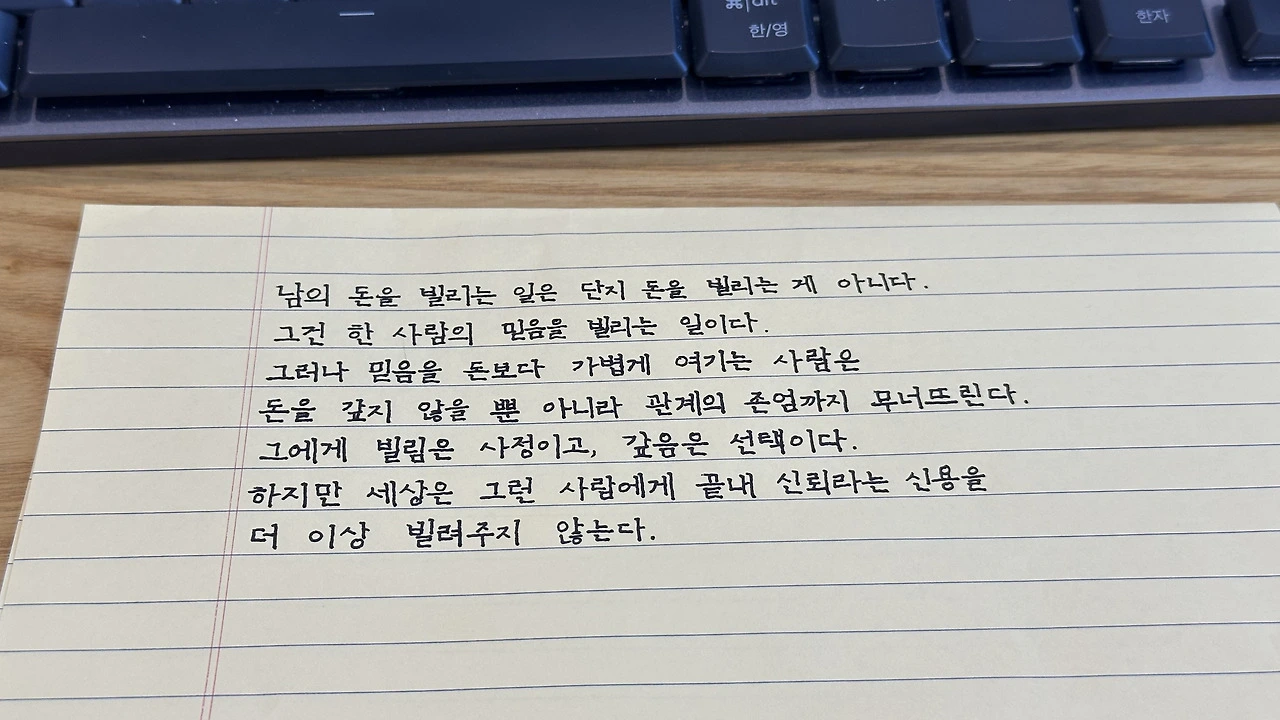 ⌘|alt
한/영
한자
남의 돈을 빌리는 일은 단지 돈을 빌리는 게 아니다.
그건 한 사람의 믿음을 빌리는 일이다.
그러나 믿음을 돈보다 가볍게 여기는 사람은
돈을 갚지 않을 뿐 아니라 관계의 존엄까지 무너뜨린다.
그에게 빌림은 사정이고, 갚음은 선택이다.
하지만 세상은 그런 사람에게 끝내 신뢰라는 신용을
더 이상 빌려주지 않는다.